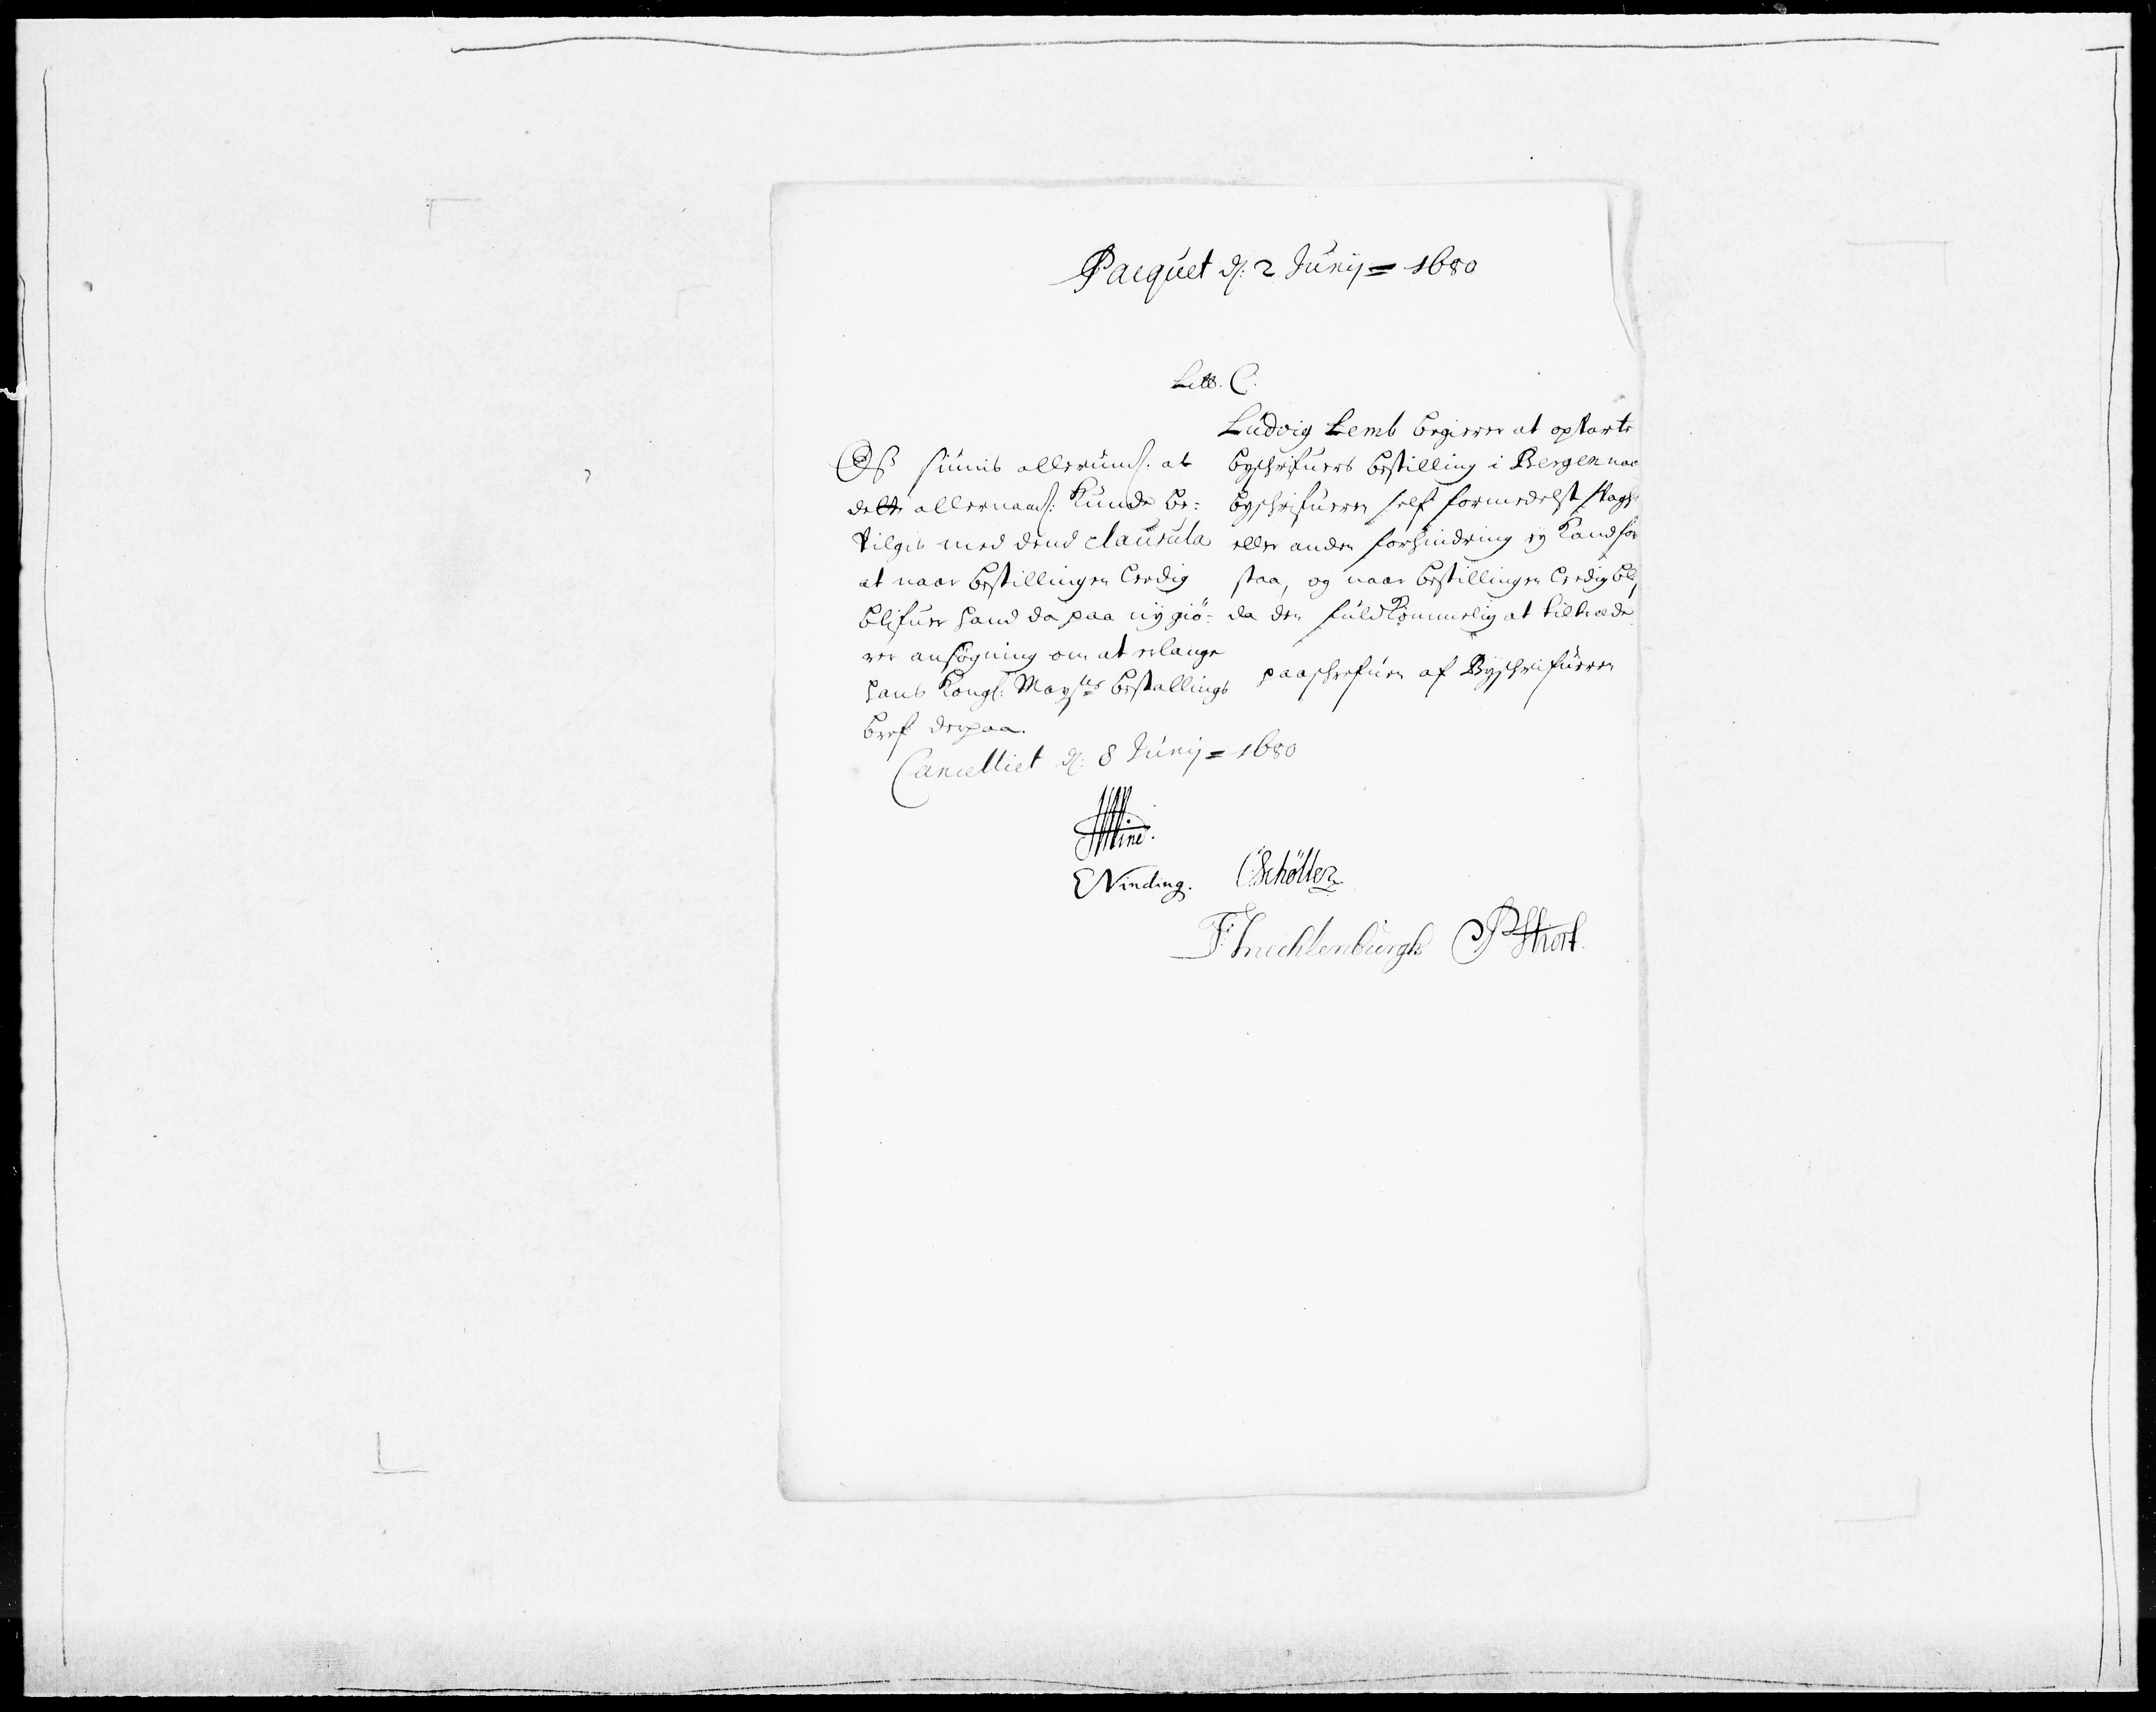 Pacquet d: 2 Junij = 1680
Litt. C.
Ludvig Lemb begierer at opvarte
byschrifuers bestilling i Bergen naar
byschrifueren self formedelst svaghed
eller anden forhindring ej kand for
staa, og naar bestillingen ledig blif
da den fuldkommelig at tiltræde
paaschrefuen af Byschrifueren
Os siunis allerund. at
dette allernaad: kunde be=
vilges med dend clausula
at naar bestillingen ledig
blifuer hand da paa ny giö=
rer ansögning om at erlange
hans Kongl: Mayts bestallings
bref derpaa.
Cancelliet d: 8 Junij = 1680
EVinding. CSchöller
F: Mechlenburgh